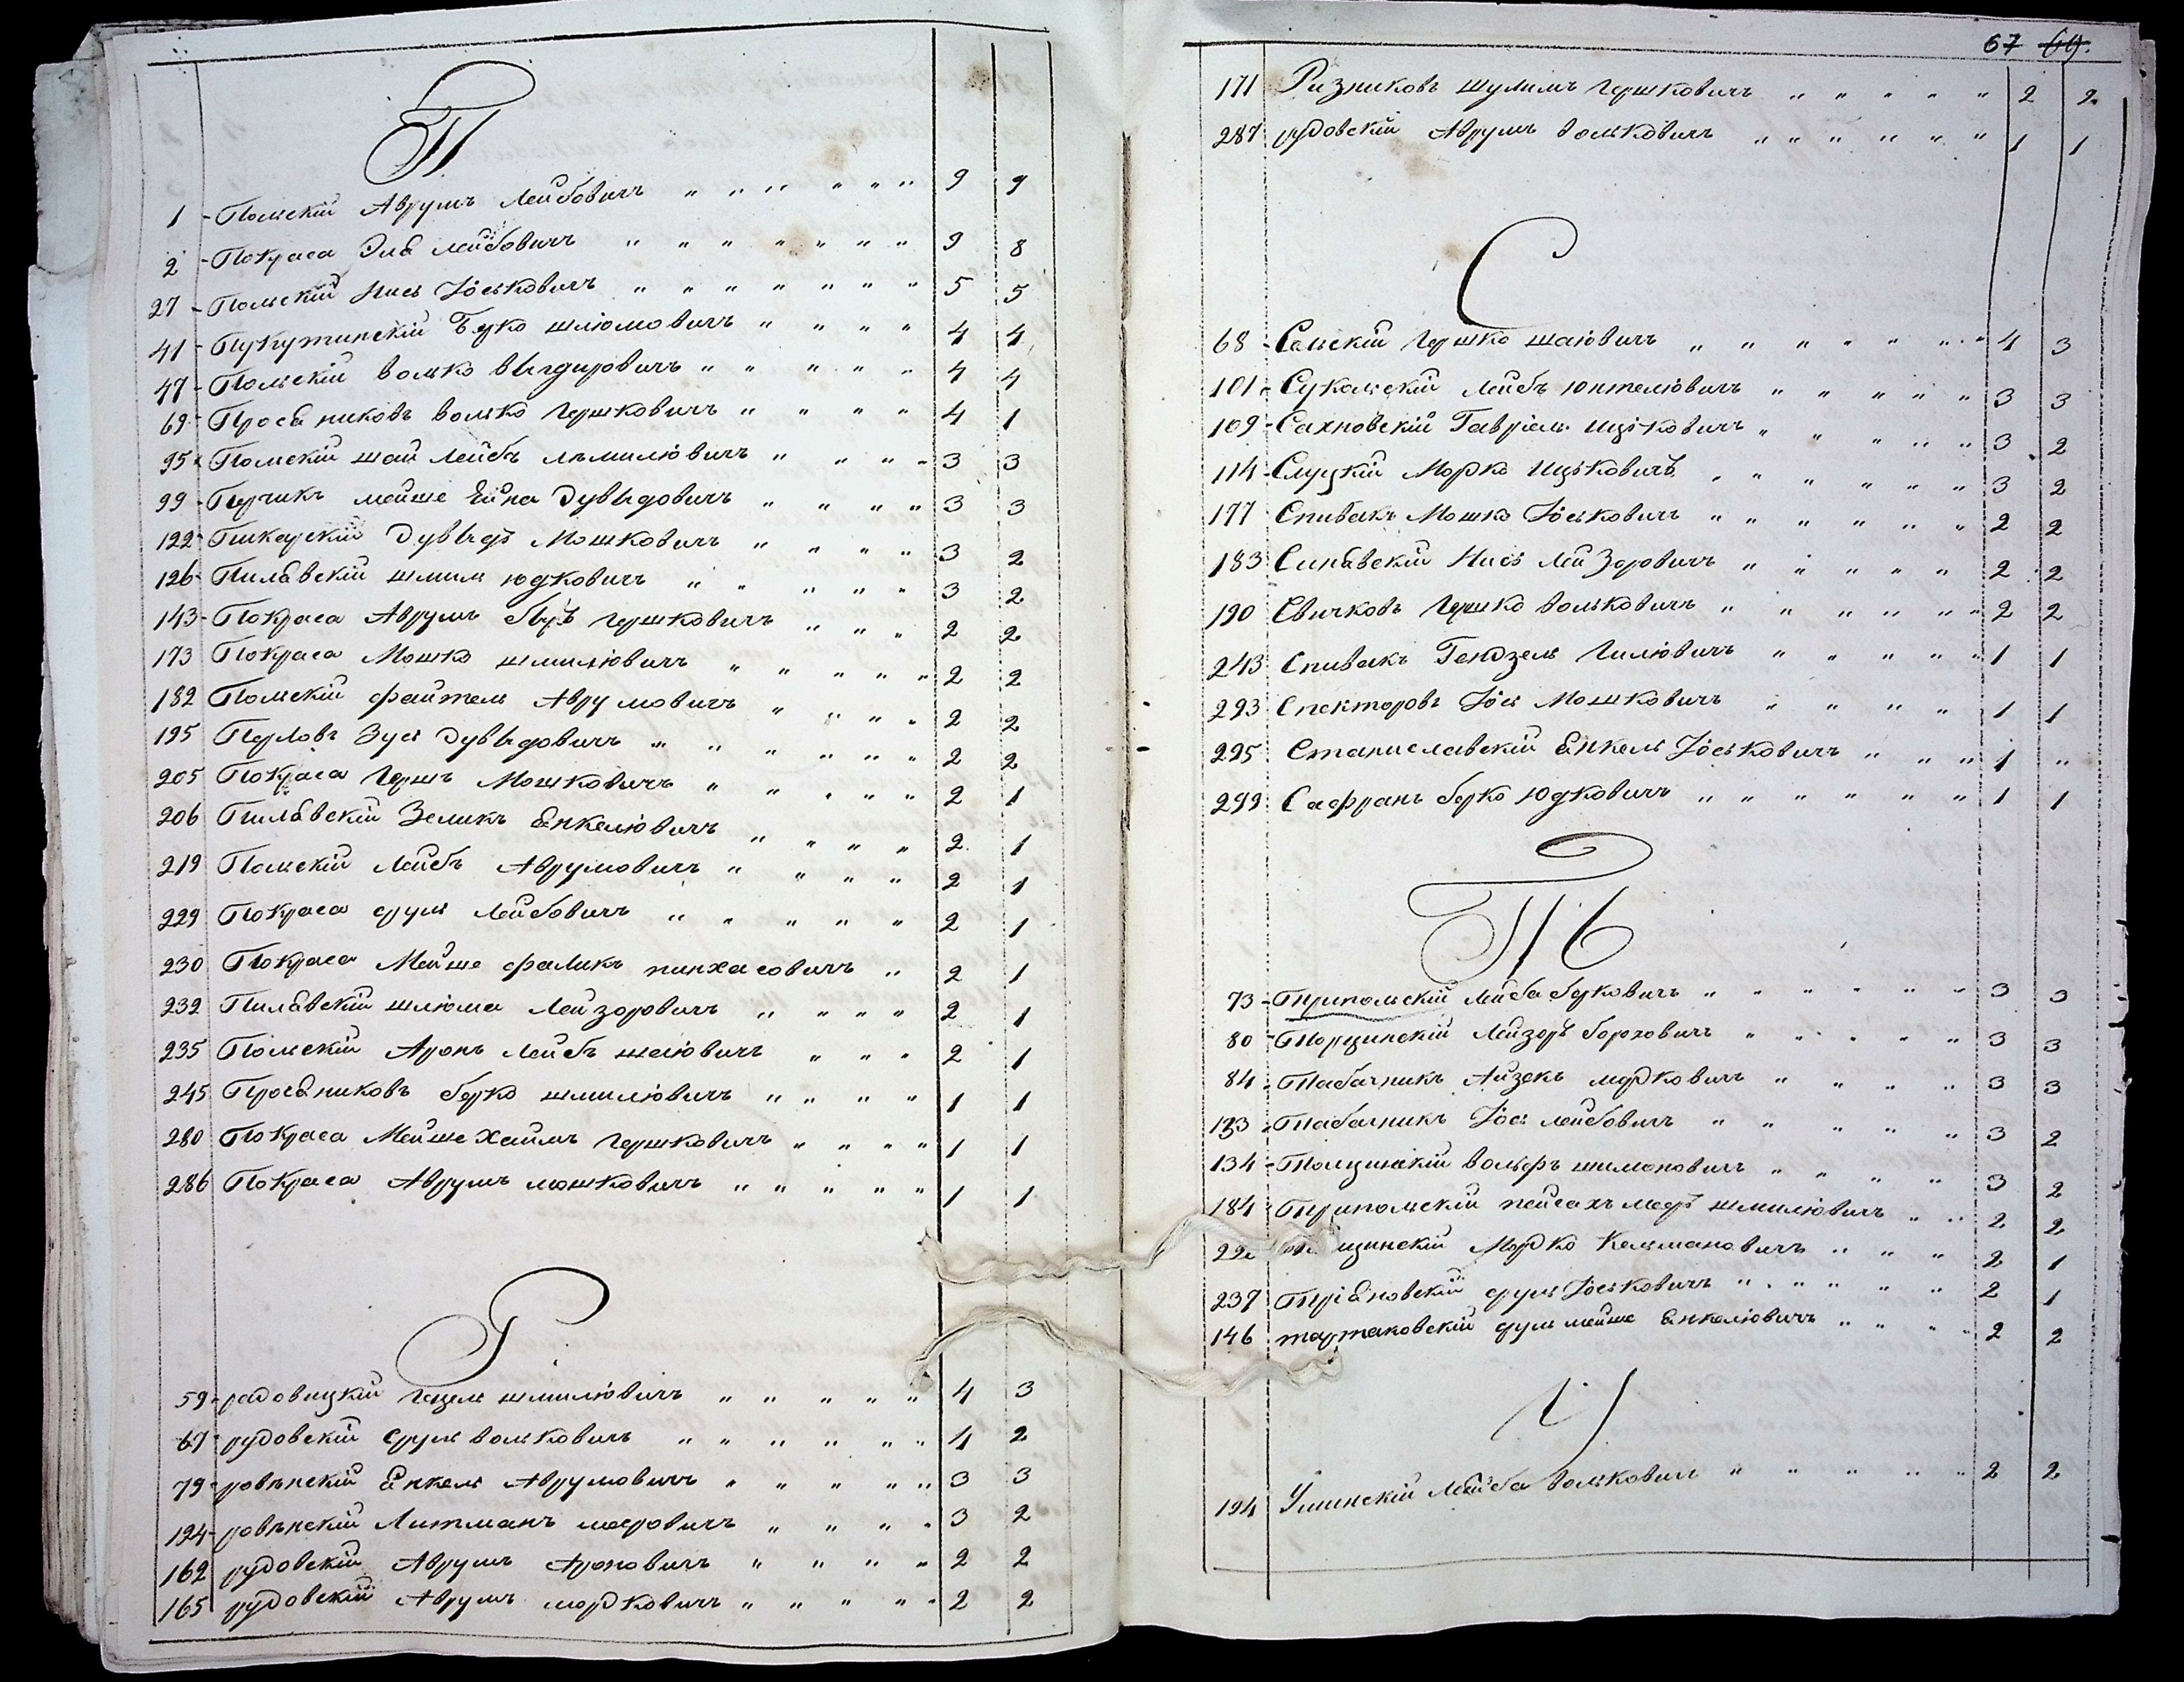 П
1 - Польскій Аврумъ Лейбовичъ " " " " " " 9 9
2 - Покраса Эля Лейбовичъ " " " " " " " 9 8
27 - Польскій Нись Іоськовичъ " " " " " " " 5 5
41 - Пукутинскій Берко шлюмовичъ " " " " 4 4
47 - Польскій волько выгдировичъ " " " " " 4 4
69 - Просяниковъ волько Гершковичъ " " " " 4 1
95 - Польскій шай Лейбъ 3 3
99 - Перчикъ мейше Ейна Дувыдовичъ " " " " 3 3
122 - Пикарскій Дувыдъ Мошковичъ " " " " 3 2
126 - Пилявскій шмилъ юдковичъ " " " " " 3 2
143 - Покраса Аврумъ Гершковичъ " " " 2 2
173 Покраса Мошко шмилювичъ " " " " " 2 2
182 Польскій файтель Аврумовичъ " " " " 2 2
195 Перловъ Зусь Дувыдовичъ " " " " " " 2 2
205 Покраса Гершъ Мошковичъ " " " " " 2 1
206 Пилявскій Зеликъ Янкелювичъ " " " " 2 1
219 Польскій Лейбъ Аврумовичъ " " " " 2 1
229 Покраса сруль Лейбовичъ " " " " " 2 1
230 Покраса Мейше фаликъ пинхасовичъ " 2 1
232 Пилявскій шлюма Лейзоровичъ " " " " 2 1
235 Польскій Аронъ Лейбъ шеювичъ " " " 2 1
245 Просяниковъ берко шмилювичъ " " " " 1 1
280 Покраса Мейше Хаимъ Гершковичъ " " " " 1 1
286 Покраса Аврумъ мошковичъ " " " " " 1 1
Р
59 - радовицкій Гецель шмилювичъ " " " " " 4 3
67 - рудовскій Сруль вольковичъ " " " " " " 4 2
79 - ровьнскій Янкель Аврумовичъ " " " " " 3 3
124 - ровьнскій Литманъ меіровичъ " " " " 3 2
162 рудовскій Аврумъ Ароновичъ " " " " 2 2
165 рудовскій Аврумъ мордковичъ " " " " " 2 2
67 69.
171 Ризниковъ шулимъ Гершковичъ " " " " " 2 2
287 рудовскій Аврумъ вольковичъ " " " " " " 1 1
С
68 - Сельскій Гершко шаіовичъ " " " " " " 4 3
101 - Сукольскій Лейбъ юнтелювичъ " " " " " 3 3
109 - Сахновскій Гавріель ицковичъ " " " " " 3 2
114 - Слуцкій Мордко ицьковичъ " " " " " " 3 2
177 Спивакъ Мошко Іоськовичъ " " " " " " 2 2
183 Синявскій Нись Лейзоровичъ " " " " " 2 2
190 Свичковъ Гершко вольковичъ " " " " " " 2 2
243 Спивакъ Гендзель Гилювичъ " " " " " 1 1
293 Спекторовъ Іось Мошковичъ " " " " 1 1
295 Станиславскій Янкель Іоськовичъ " " " 1 "
299 Сафранъ берко юдковичъ " " " " " " 1 1
Тъ
73 - Трипольскій Лейба берковичъ " " " " " " 3 3
80 - Торчинскій Лейзоръ борховичъ " " " " " 3 3
84 - Табачникъ Айзекъ мордковичъ " " " " 3 3
133 - Табачникъ Іось Лейбовичъ " " " " " 3 2
134 - Толчинскій вольфъ шимоновичъ " " " " 3 2
184 Трипольскій пейсахъ меръ шмилювичъ " " 2 2
Мордко Кельмановичъ " " " 2 1
237 Тріяновскій сруль Іоськовичъ " " " " " 2 1
146 тартаковскій сруль мейше Янкелювичъ " " " " 2 2
У
194 Уманскій Лейба вольковичъ " " " " " 2 2